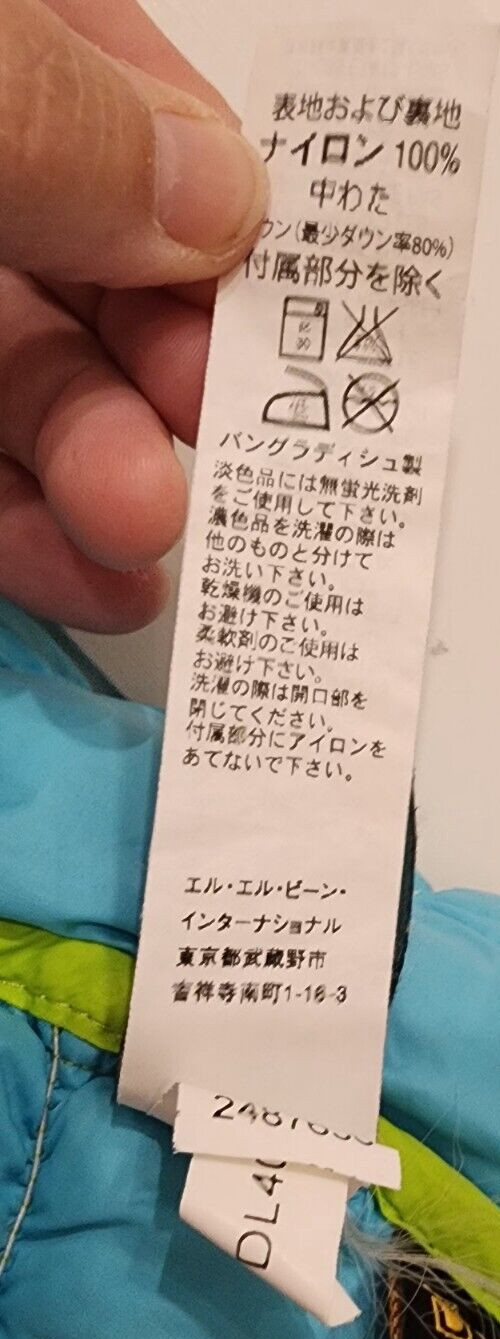 表地および裏地
ナイロン 100%
中わた
ウン(最少ダウン率80%)
付属部分を除く
バングラディシュ製
淡色品には無蛍光洗剤
をご使用して下さい。
濃色品を洗濯の際は
他のものと分けて
お洗い下さい。
乾燥機のご使用は
お避け下さい。
柔軟剤のご使用は
お避け下さい。
洗濯の際は開口部を
閉じてください。
付属部分にアイロンを
あてないで下さい。
エル・エル・ビーン・
インターナショナル
東京都武蔵野市
吉祥寺南町1-16-3
DL40